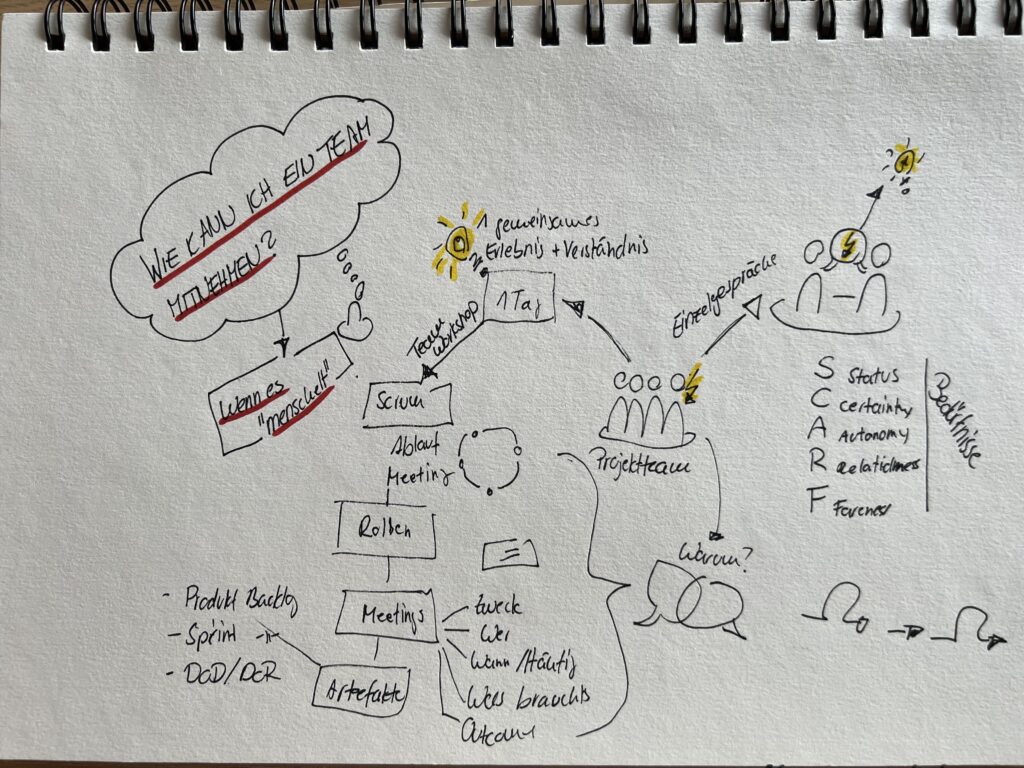 WIE KANN ICH EIN TEAM
MITNEHMEN?
Wenn es
"menschelt"
1 gemeinsames
Erlebnis + Verständnis
1 Tag
Team
Workshop
Scrum
Ablauf
Meeting
Rollen
Meetings
Zweck
Wer
Wann / Häufig
Was brauchts
Outcome
- Produkt Backlog
- Sprint -"-
- DoD/DoR
Artefakte
Einzelgespräche
Projektteam
Warum?
S Status
C certainty
A Autonomy
R Relatedness
F Fareness
Bedürfnisse